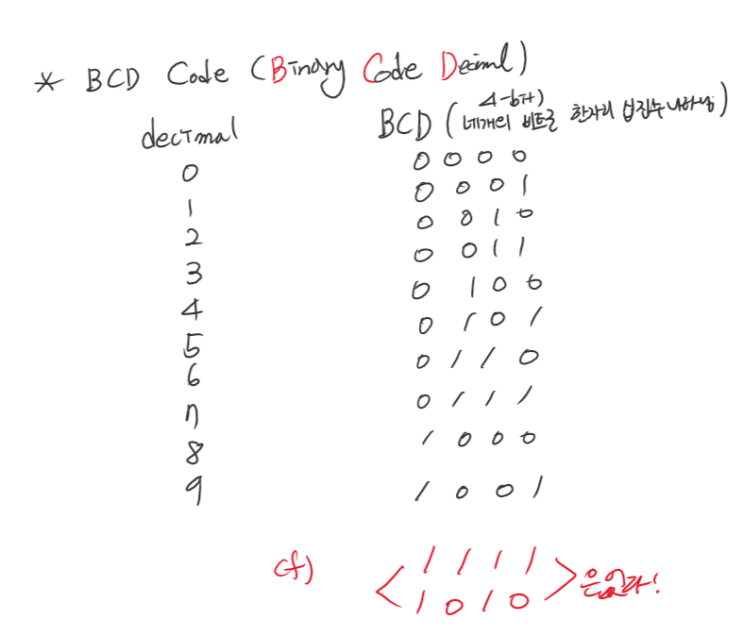 * BCD Code (Binary Code Decimal)
decimal BCD (4-bit) 네개의 비트로 한자리 십진수 나타냄)
0 0 0 0 0
1 0 0 0 1
2 0 0 1 0
3 0 0 1 1
4 0 1 0 0
5 0 1 0 1
6 0 1 1 0
7 0 1 1 1
8 1 0 0 0
9 1 0 0 1
cf) < 1 1 1 1
1 0 1 0 > 은 없다!